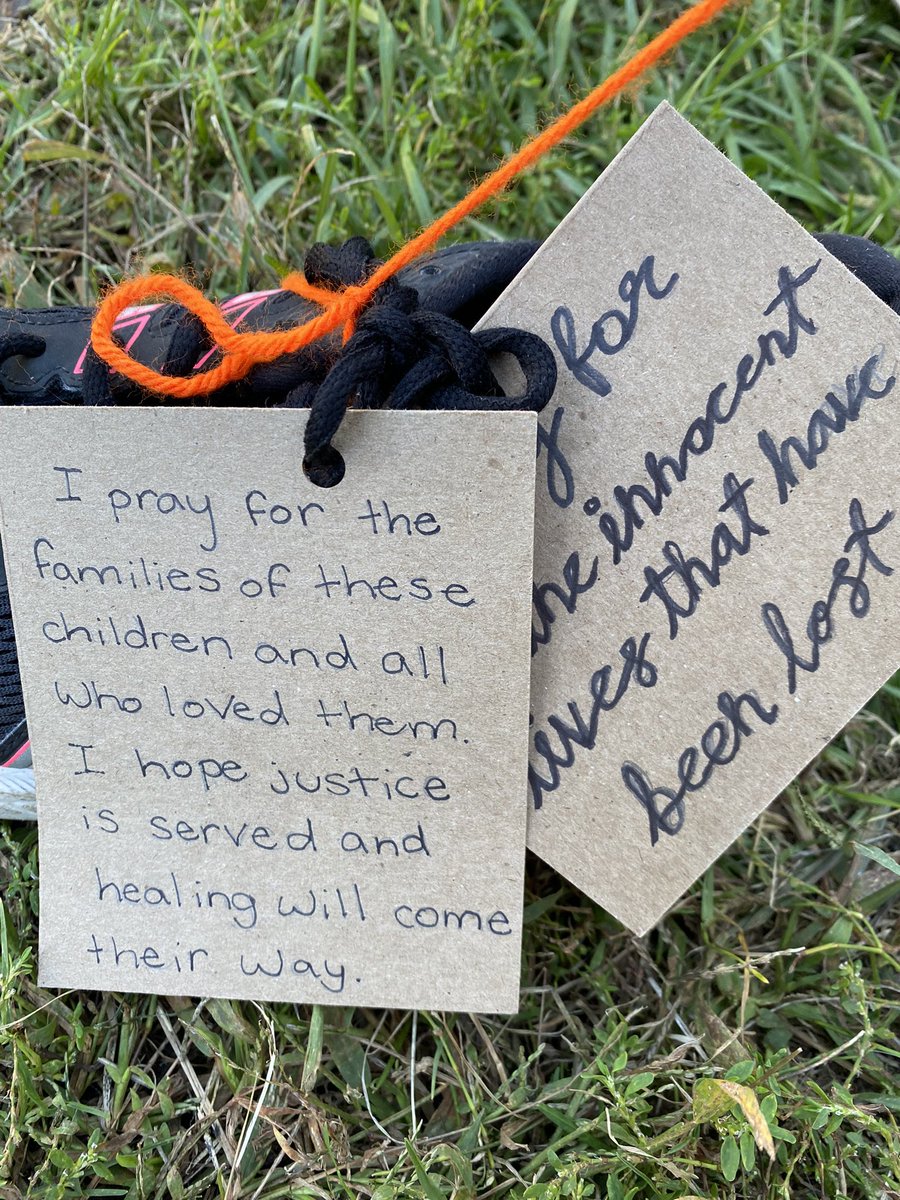 I pray for the
families of these
children and all
who loved them.
I hope justice
is served and
healing will come
their way.
for
the innocent
lives that have
been lost